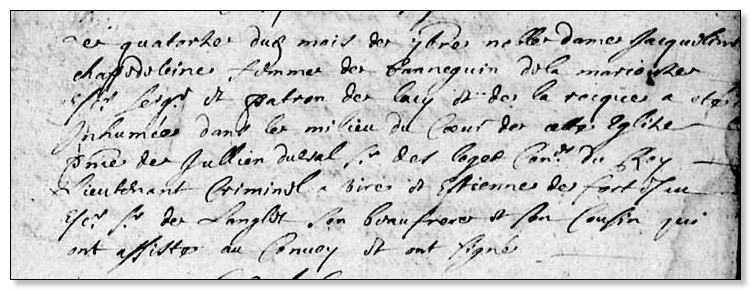 Le quatorze dud mois de 7bre noble dame Jacqueline
chappedelaine femme de hanneguin de la mariouse
Escr Seigr et patron de lacy et de la rocque a esté
Inhumée dans le milieu du Cœur de cette Eglise
pnce de Jullien duval Sr des loges Conr du Roy
Lieutenant Criminel a vire et Estienne de fort
Escr Sr de Langlet Son beaufrere et Son Cousin qui
ont assisté au Convoy et ont signé